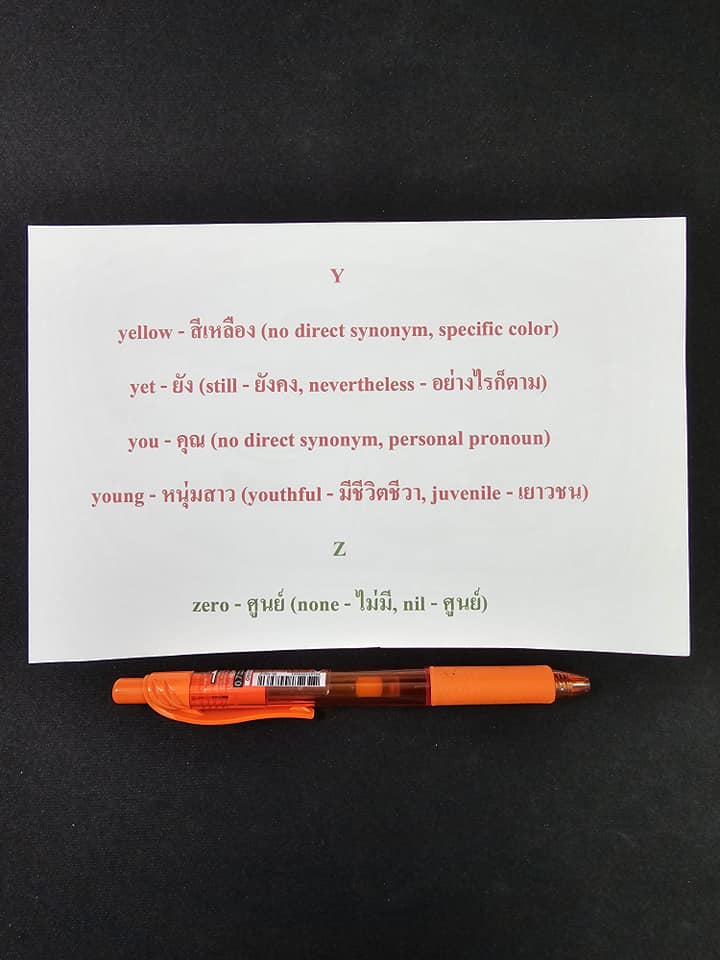 Y
yellow - สีเหลือง (no direct synonym, specific color)
yet - ยัง (still - ยังคง, nevertheless - อย่างไรก็ตาม)
you - คุณ (no direct synonym, personal pronoun)
young - หนุ่มสาว (youthful - มีชีวิตชีวา, juvenile - เยาวชน)
Z
zero - ศูนย์ (none - ไม่มี, nil - ศูนย์)